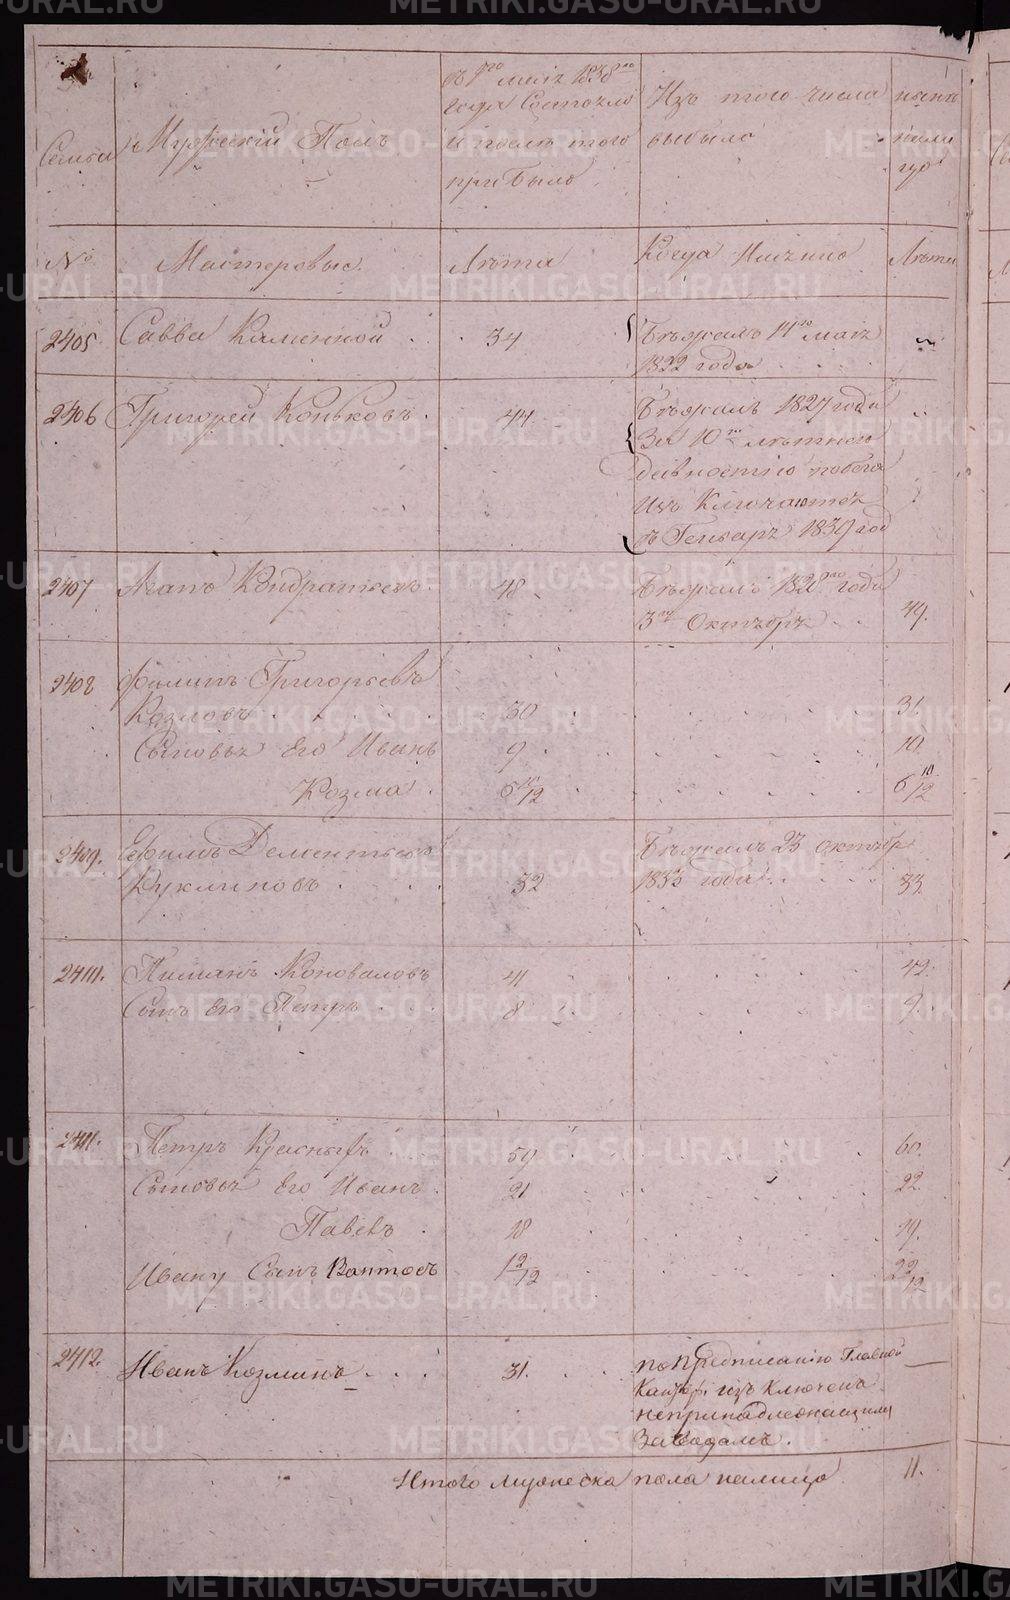 METRIKI.GASO-URAL.RU
Семьи
Мужеский Полъ
съ 1го маiя 1838го
года Состояло
и после того
прибыло
Изъ того числа
выбыло
ныне
нали
цо
№
Мастеровые.
Лѣта
Когда Именно
Лѣта
2405
Савва Каменной
34
Бѣжалъ 11го маiя
1832 года
2406
Григорей Коньковъ
44
Бѣжалъ 1827 года
За 10ти лѣтнею
давностiю побега
Изъ
въ Генваре 1839 год
2407
Агапъ Кондратьевъ
48
Бѣжалъ 1828го года
3го Октября
49.
2408
Филипъ Григорьевъ
Козловъ
30
31
Сыновья Его Иванъ
9
10
Козма
6/12
6 /12
2409.
Ефимъ Дементьевъ
Куклиновъ
32
Бѣжалъ 23 октября
1833 года
33
2410.
Пиманъ Коноваловъ
41
42.
Сынъ Его Петръ
8
9.
2411.
Петръ Красныхъ
59
60
Сыновья Его Иванъ
21
22
Павелъ
18
19.
Ивану Сынъ
1 2/12
2 2/12
2412.
Иванъ Козминъ
31.
по Предписанiю Главной
изъ Ключенъ
непринадлежащим
Заводамъ.
Итого мужеска пола налицо
11.